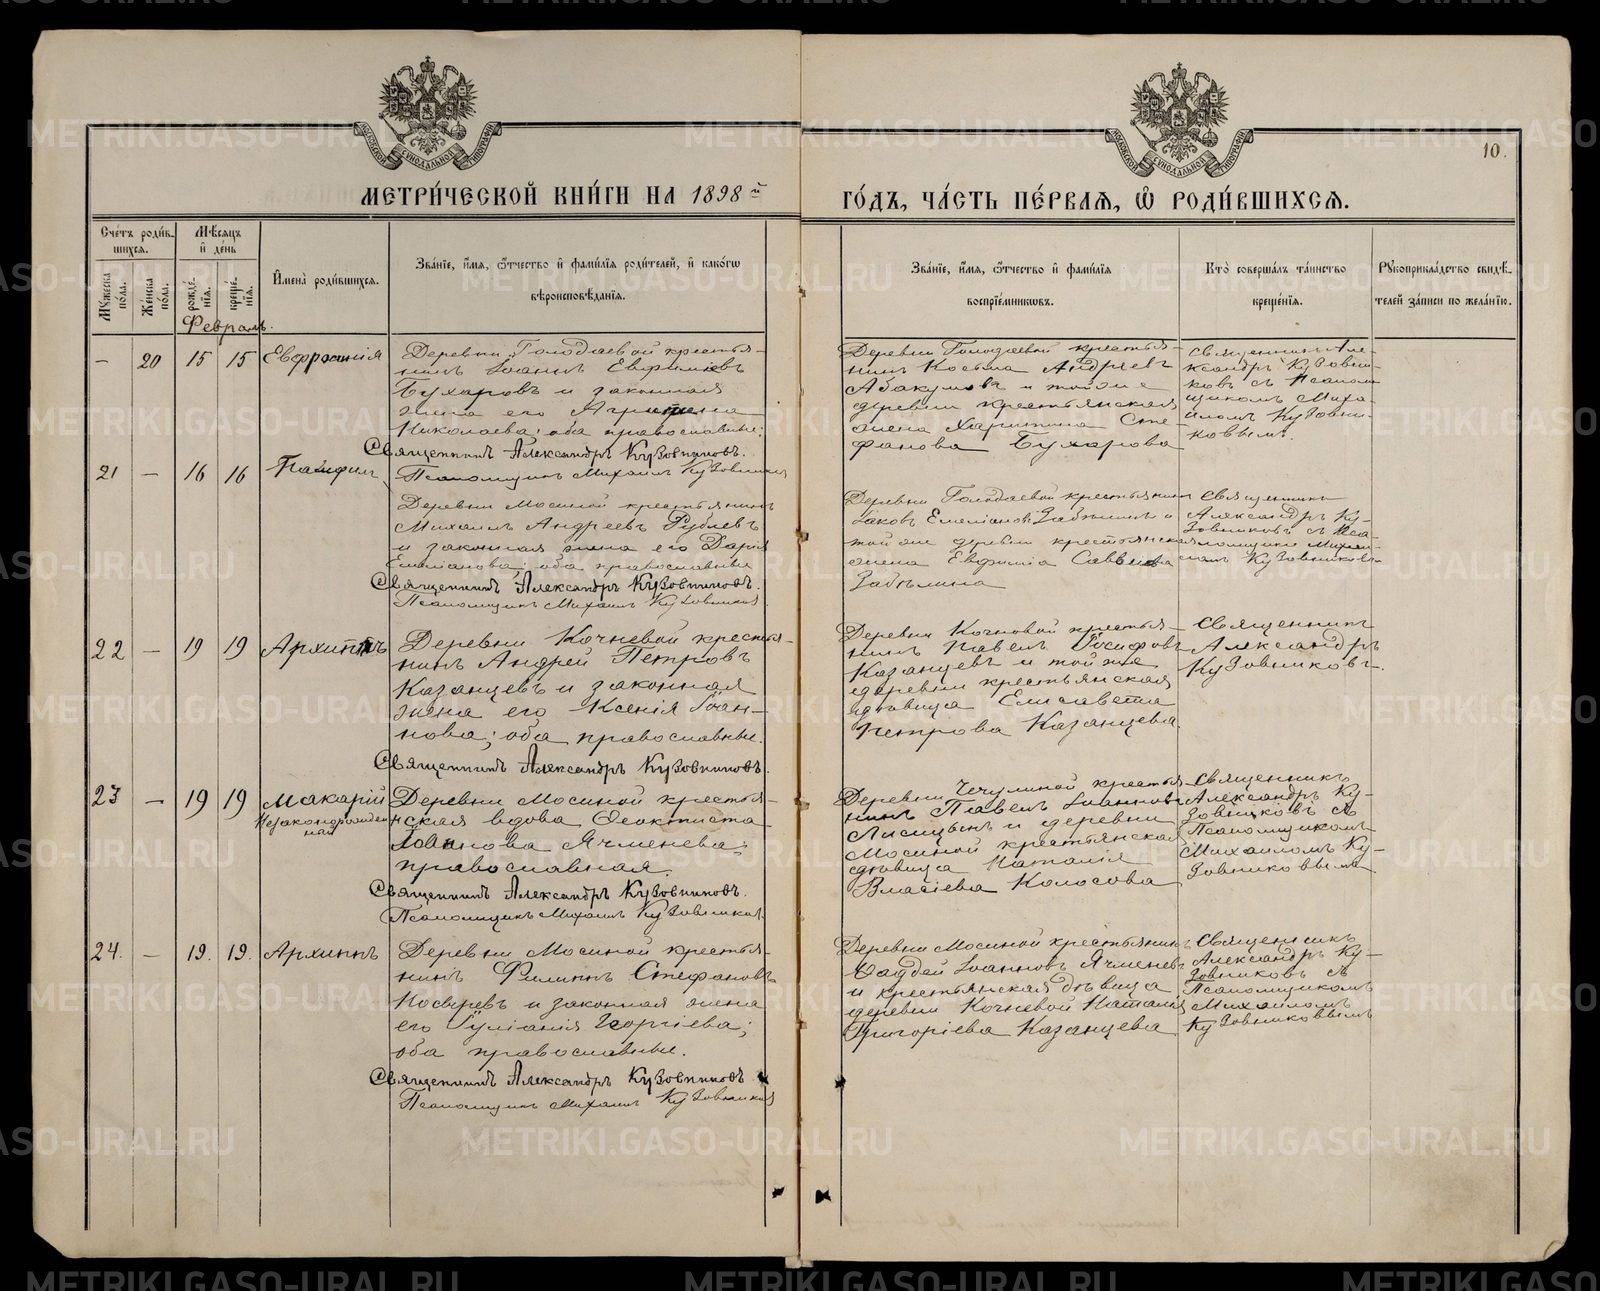 МЕТРИ́ЧЕСКОЙ КНИ́ГИ НА 1898й ГО́ДЪ, ЧА́СТЬ ПЕ́РВАЯ, Ѡ РОДИ́ВШИХСЯ.
10.
Сче́тъ роди́в-
шихся.
Мꙋ́жеска по́ла.
Же́нска по́ла.
Мѣ́сяцъ и де́нь
рожде́-нія.
креще́-нія.
Имена̀ роди́вшихся.
Зва́ніе, и́мя, о́тчество и фами́лія роди́телей, и како́гѡ
вѣроисповѣ́данія.
Зва́ніе, и́мя, о́тчество и фами́лія
воспріе́мниковъ.
Кто̀ соверша́лъ та́инство
креще́нія.
Рꙋкоприкла́дство свидѣ́-
телей за́писи по жела́нію.
Февраль.
— 20 15 15 Евфросинія
Деревни Голодаевой крестья-
нинъ Іоаннъ Евфиміевъ
Бухаровъ и законная
жена его Агрипина
Николаева; оба православные;
Священникъ Александръ Кузовниковъ.
Псаломщикъ Михаилъ Кузовниковъ
Деревни Голодаевой крестья-
нинъ Косьма Андреевъ
Абакумовъ и той же
деревни крестьянская
жена Харитина Сте-
фанова Бухарова
Священникъ Але-
ксандръ Кузовни-
ковъ съ Псалом
щикомъ Миха-
иломъ Кузовни-
ковымъ.
21 — 16 16 Памфилъ
Деревни Мосиной крестьянинъ
Михаилъ Андреевъ Рублевъ
и законная жена его Дарія
Емеліанова; оба православные
Священникъ Александръ Кузовниковъ.
Псаломщикъ Михаилъ Кузовниковъ
Деревни Голодаевой крестьянинъ
Іаковъ Емеліановъ Забѣлинъ и
той же деревни крестьянская
жена Евфимія Саввина
Забѣлина
Священникъ
Александръ Ку-
зовниковъ съ Пса-
ломщикомъ Михаи-
ломъ Кузовниковы
22 — 19 19 Архиппъ
Деревни Кочневой крестья-
нинъ Андрей Петровъ
Казанцевъ и законная
жена его Ксенія Іоан-
нова; оба православные.
Священникъ Александръ Кузовниковъ.
Деревни Кочновой крестья-
нинъ Павелъ Іосифовъ
Казанцевъ и той же
деревни крестьянская
дѣвица Елисавета
Петрова Казанцева.
Священникъ
Александръ
Кузовниковъ.
23 — 19 19 Макарій
Незаконорожден
ный
Деревни Мосиной крестья-
нская вдова Ѳеоктиста
Іоаннова Ячменева;
православная.
Священникъ Александръ Кузовниковъ.
Псаломщикъ Михаилъ Кузовниковъ
Деревни Чечулиной крестья
нинъ Павелъ Іоанновъ
Лисицынъ и деревни
Мосиной крестьянская
дѣвица Наталія
Власіева Колосова
Священникъ
Александръ Ку-
зовниковъ съ
Псаломщикомъ
Михаиломъ Ку-
зовниковымъ
24. — 19. 19. Архиппъ
Деревни Мосиной крестья-
нинъ Филиппъ Стефановъ
Косыревъ и законная жена
его Іуліанія Георгіева;
оба православные.
Священникъ Александръ Кузовниковъ
Псаломщикъ Михаилъ Кузовниковъ
Деревни Мосиной крестьянинъ
Ѳаддей Іоанновъ Ячменевъ
и крестьянская дѣвица
деревни Кочневой Наталія
Григоріева Казанцева
Священникъ
Александръ Ку-
зовниковъ съ
Псаломщикомъ
Михаиломъ
Кузовниковымъ
METRIKI.GASO-URAL.RU